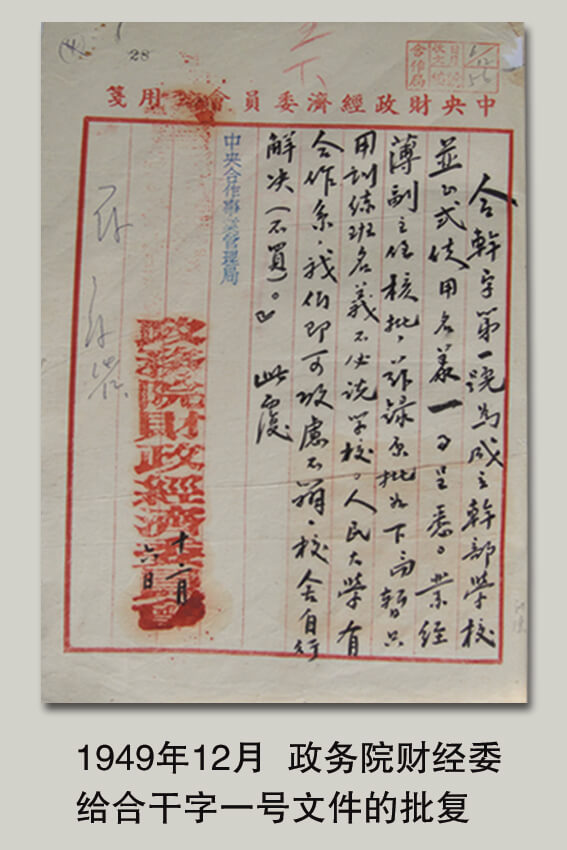 (4)
28
合作局
中央財政經濟委員會用箋
合幹字第一號為成立幹部學校
並正式使用名義一事呈悉。業經
薄副主任核批，茲錄原批如下『暫只
用訓練班名義不必說學校。人民大學有
合作系，我們即可攷慮不辦，校舍自行
解決（不買）。』 此覆
中央合作事業管理局
政務院財政經濟委員會
十二月
六日
1949年12月 政务院财经委
给合干字一号文件的批复